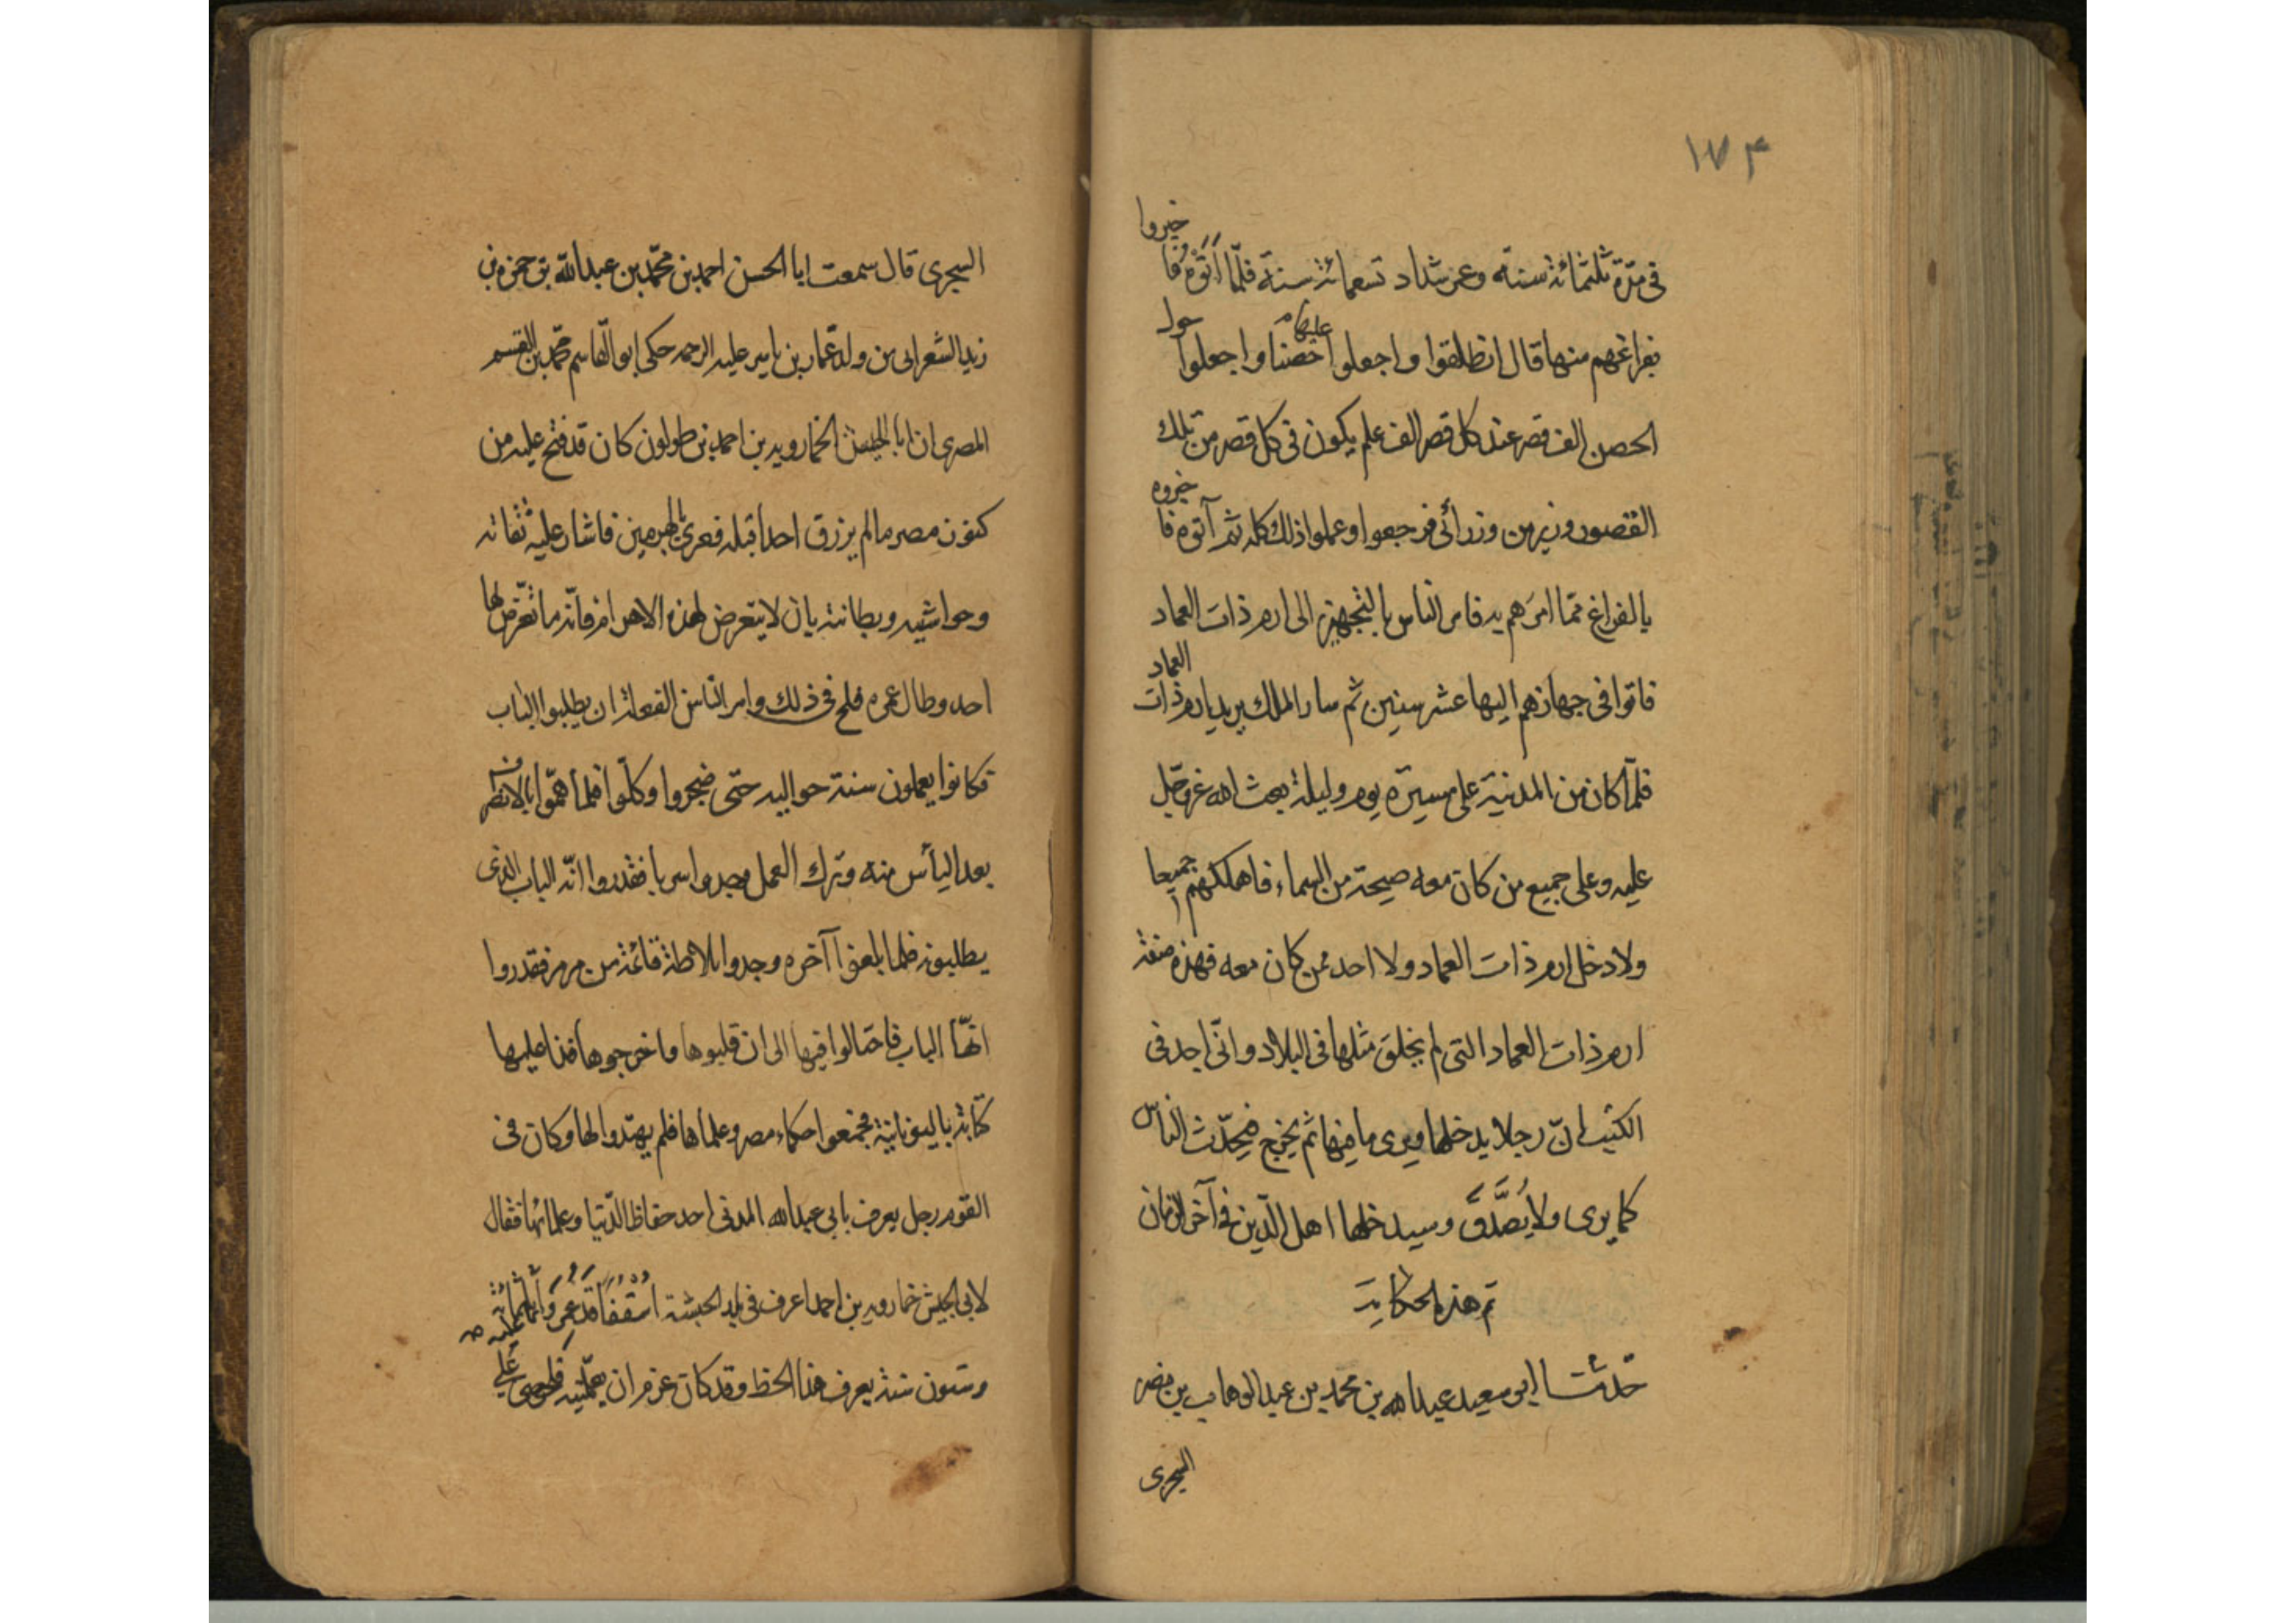 ۱۷۴
فى مدّة ثلثمائة سنة وعمر شداد تسعمائة سنة فلمّا أَتَوْهُ فأخبروا
بفراغهم منها قال انطلقوا واجعلوا عليها حصنا واجعلوا حول
الحصن الف قصر عند كل قصر الف علم يكون فى كل قصر من تلك
القصور وزير من وزرائى فرجعوا وعملوا ذلك كله ثم آتوه فاخبروه
بالفراغ ممّا امرَهم به فامر الناس بالتجهيز الى ارم ذات العماد
فاقوا فى جهازهم اليها عشر سنين ثم سار الملك يريد ارم ذات العماد
فلمّا كان من المدينة على مسيرة يوم وليلة بعث الله عزوجل
عليه وعلى جميع من كان معه صيحة من السماء فاهلكهم جميعا
ولا دخل ارم ذات العماد ولا احد ممن كان معه فهذه صفة
ارم ذات العماد التى لم يخلق مثلها فى البلاد وانّى اجد فى
الكتب انّ رجلا يدخلها ويرى ما فيها ثم يخرج فيحدّث الناس
كما يرى ولا يُصَدَّقَ وسيدخلها اهل الدّين فى آخر الزمان
تم هذه الحكاية
حدّثنا ابى سعيد عبدالله بن محمد بن عبدالوهاب بن نصر
السجرى
السجرى قال سمعت ابا الحسن احمد بن محمّد بن عبدالله بن حمزه بن
زيد الشعرانى من ولد عمّار بن ياسر عليه الرحمه حكى ابوالقاسم محمّد بن القسم
المصرى ان ابا الجيش الخمارويه بن احمد بن طولون كان قد فتح عليه من
كنوز مصر ما لم يرزق احداً قبله فعرى بالهرمين فاشار عليه ثقاته
وحواشيه وبطانته بان لا يتعرض لهذه الاهرام فانّه ما تعرّض لها
احد وطال عمره فلح فى ذلك وامر النّاس الفعلة ان يطلبوا الباب
فكانوا يعملون سنة حواليه حتّى ضجروا وكلّوا فلما همّوا بالانصراف
بعد اليأس منه وترك العمل وجدوا سربا فقدروا انّه الباب الذى
يطلبونه فلما بلغوا آخره وجدوا بلاطة قائمة من مرمر فقدروا
انّها الباب فاحتالوا فيها الى ان قلبوها واخرجوها فاذا عليها
كتابة باليونانية فجمعوا حكماء مصر وعلماها فلم يهتدوا لها وكان فى
القوم رجل يعرف بابى عبدالله المدنى احد حفاظ الدّنيا وعلمائها فقال
لابى الجيش خمارويه بن احمد اعرف فى بلد الحبشة اُسْقُفًا قَدْ عُمِرَ وَأَتى عليه ثلثمائة
وستون سنة يعرف هذا الخط وقد كان عزم ان يعلّمنيه فلحرصى علي